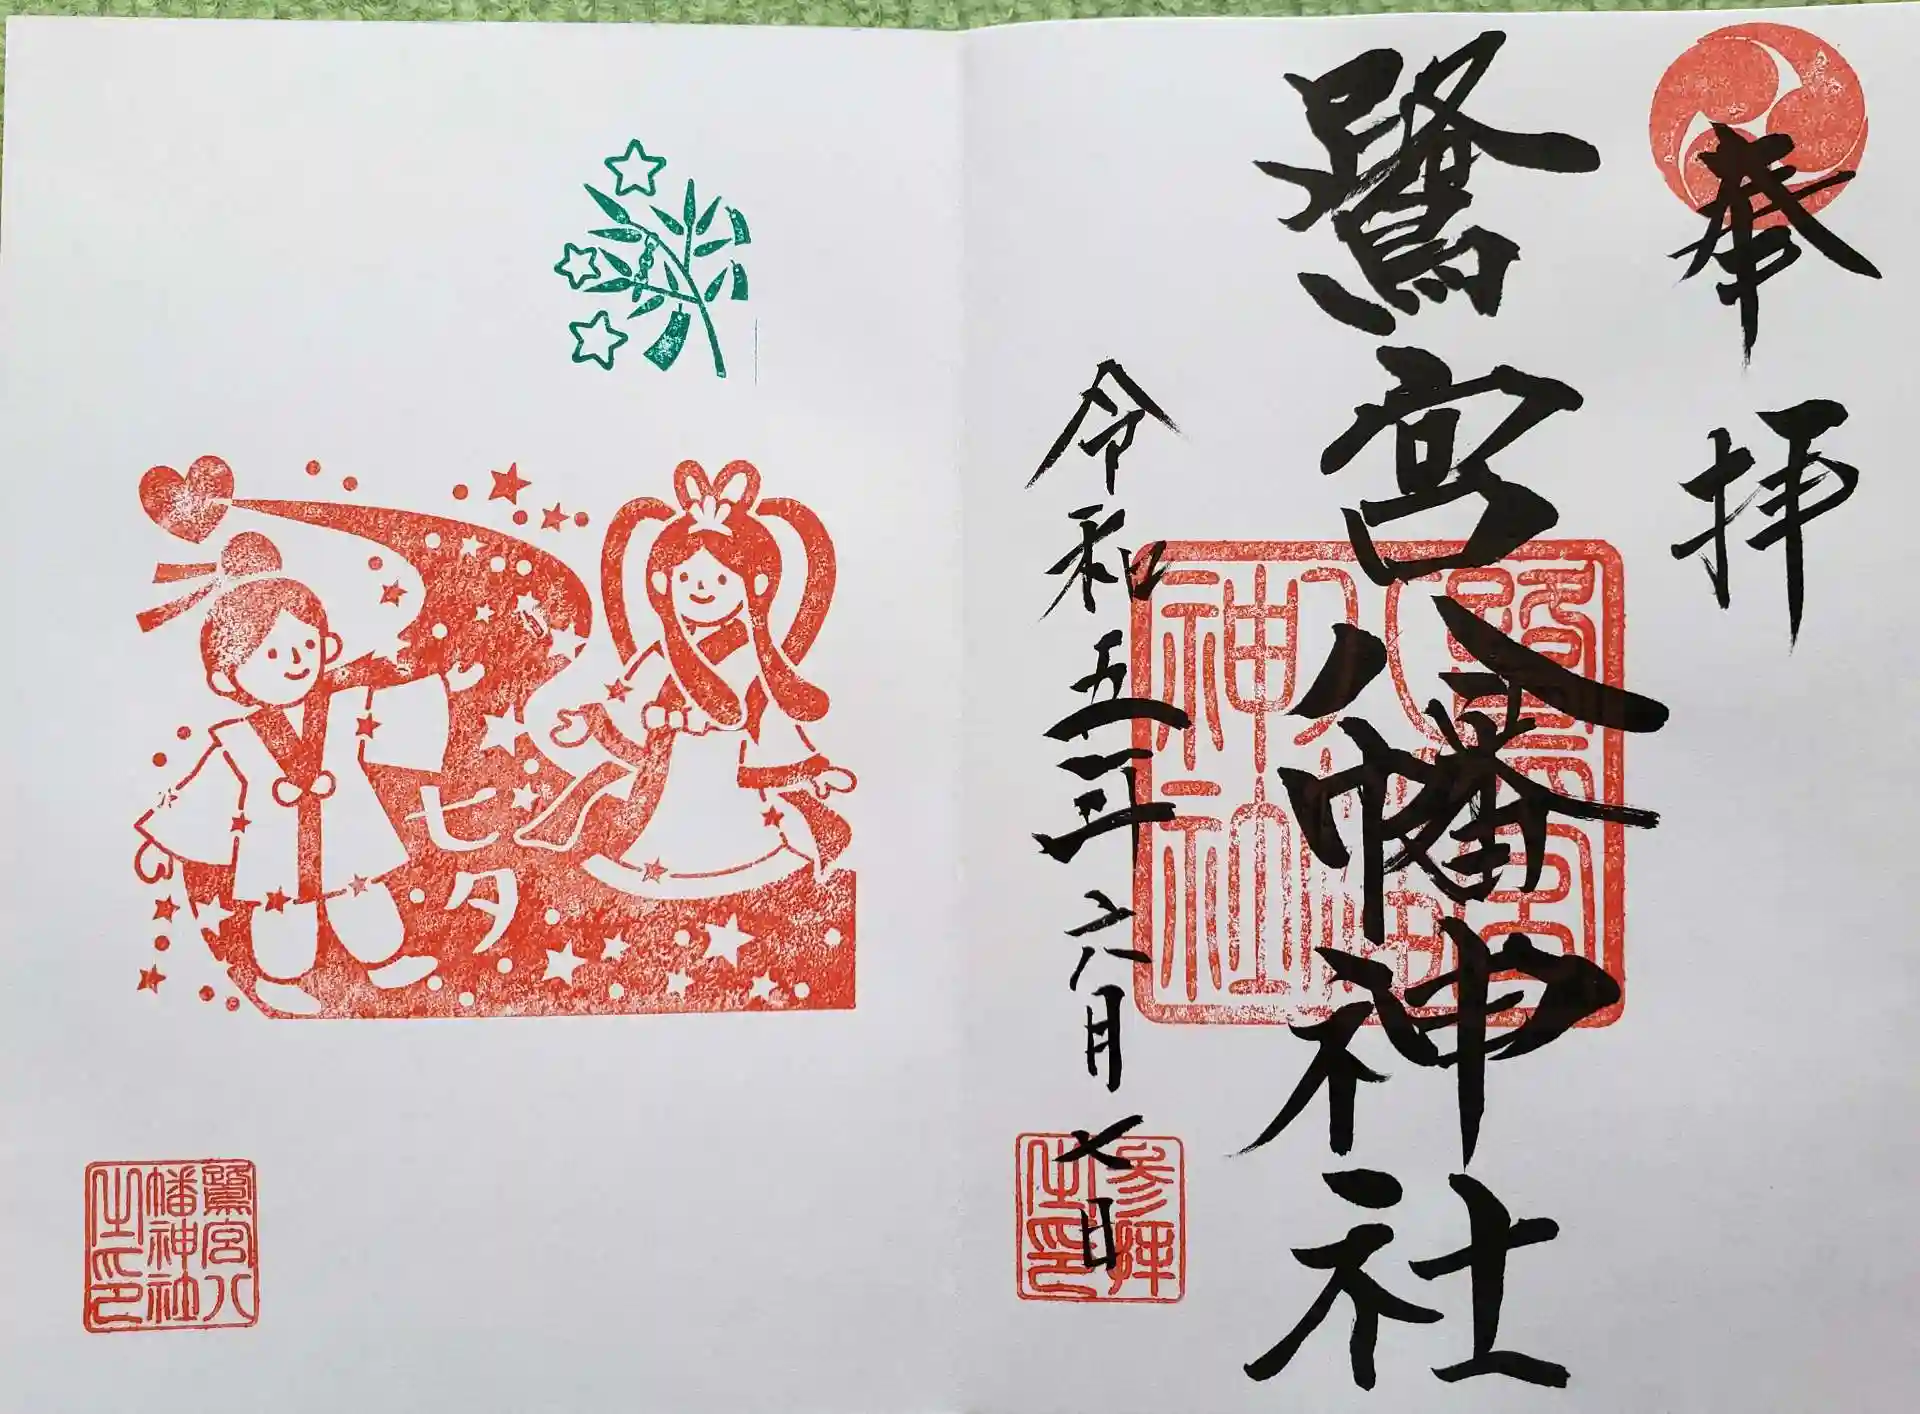 奉拝
鷺宮八幡神社
令和五年六月七日
鷺宮八
幡神社
神社
参拝
之印
七夕
鷺宮八
幡神社
之印